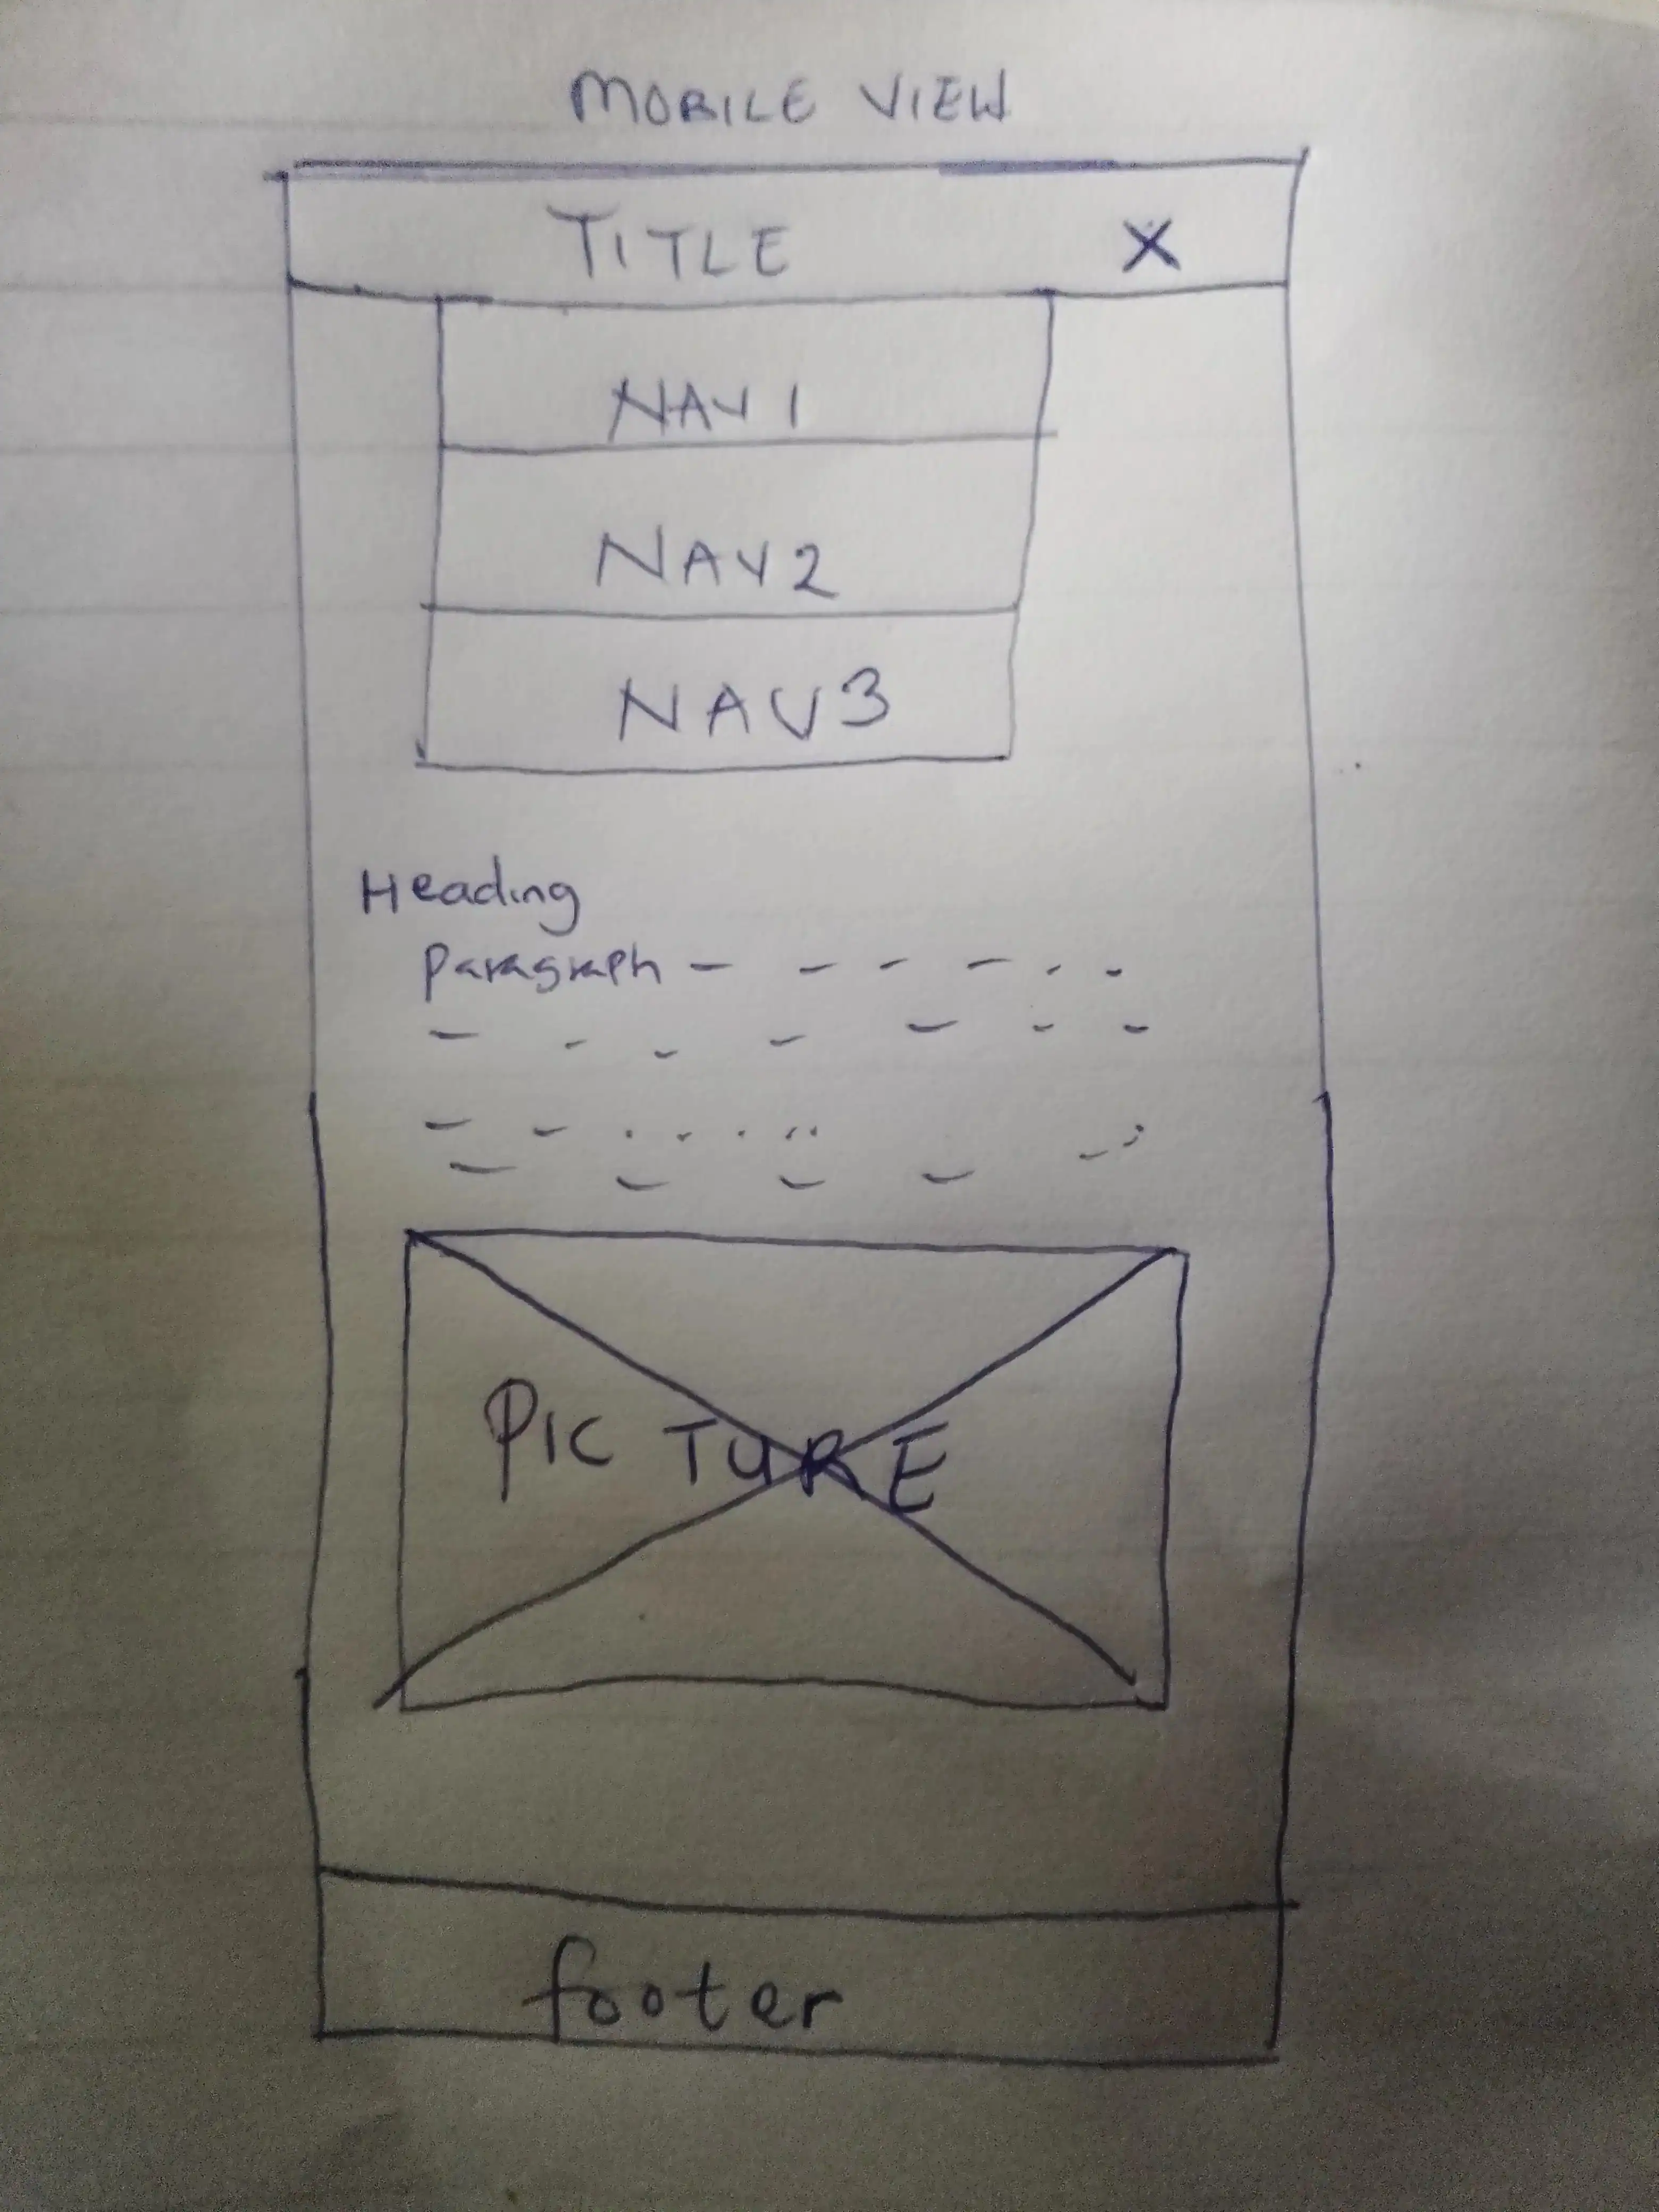 MOBILE VIEW
TITLE X
NAV 1
NAV2
NAV3
Heading
paragraph
PICTURE
footer